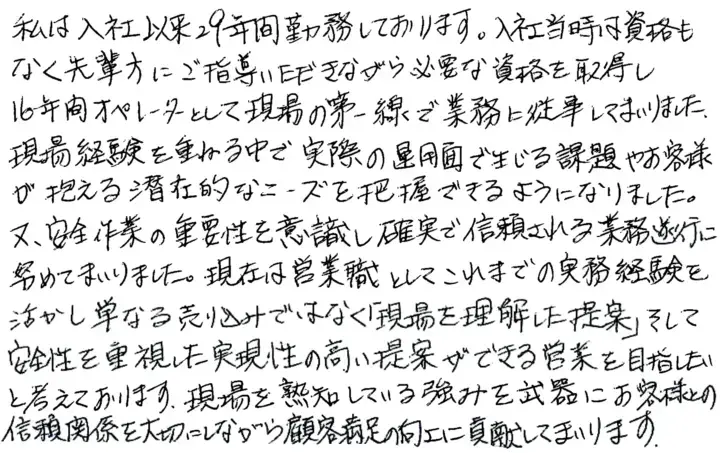 私は入社以来29年間勤務しております。入社当時は資格も
なく先輩方にご指導いただきながら必要な資格を取得し
16年間オペレーターとして現場の第一線で業務に従事してまいりました.
現場経験を重ねる中で実際の運用面で生じる課題やお客様
が抱える潜在的なニーズを把握できるようになりました。
又、安全作業の重要性を意識し確実で信頼される業務遂行に
努めてまいりました。現在は営業職としてこれまでの実務経験を
活かし単なる売り込みではなく「現場を理解した提案」そして
安全性を重視した実現性の高い提案ができる営業を目指したい
と考えております.現場を熟知している強みを武器にお客様との
信頼関係を大切にしながら顧客満足の向上に貢献してまいります.